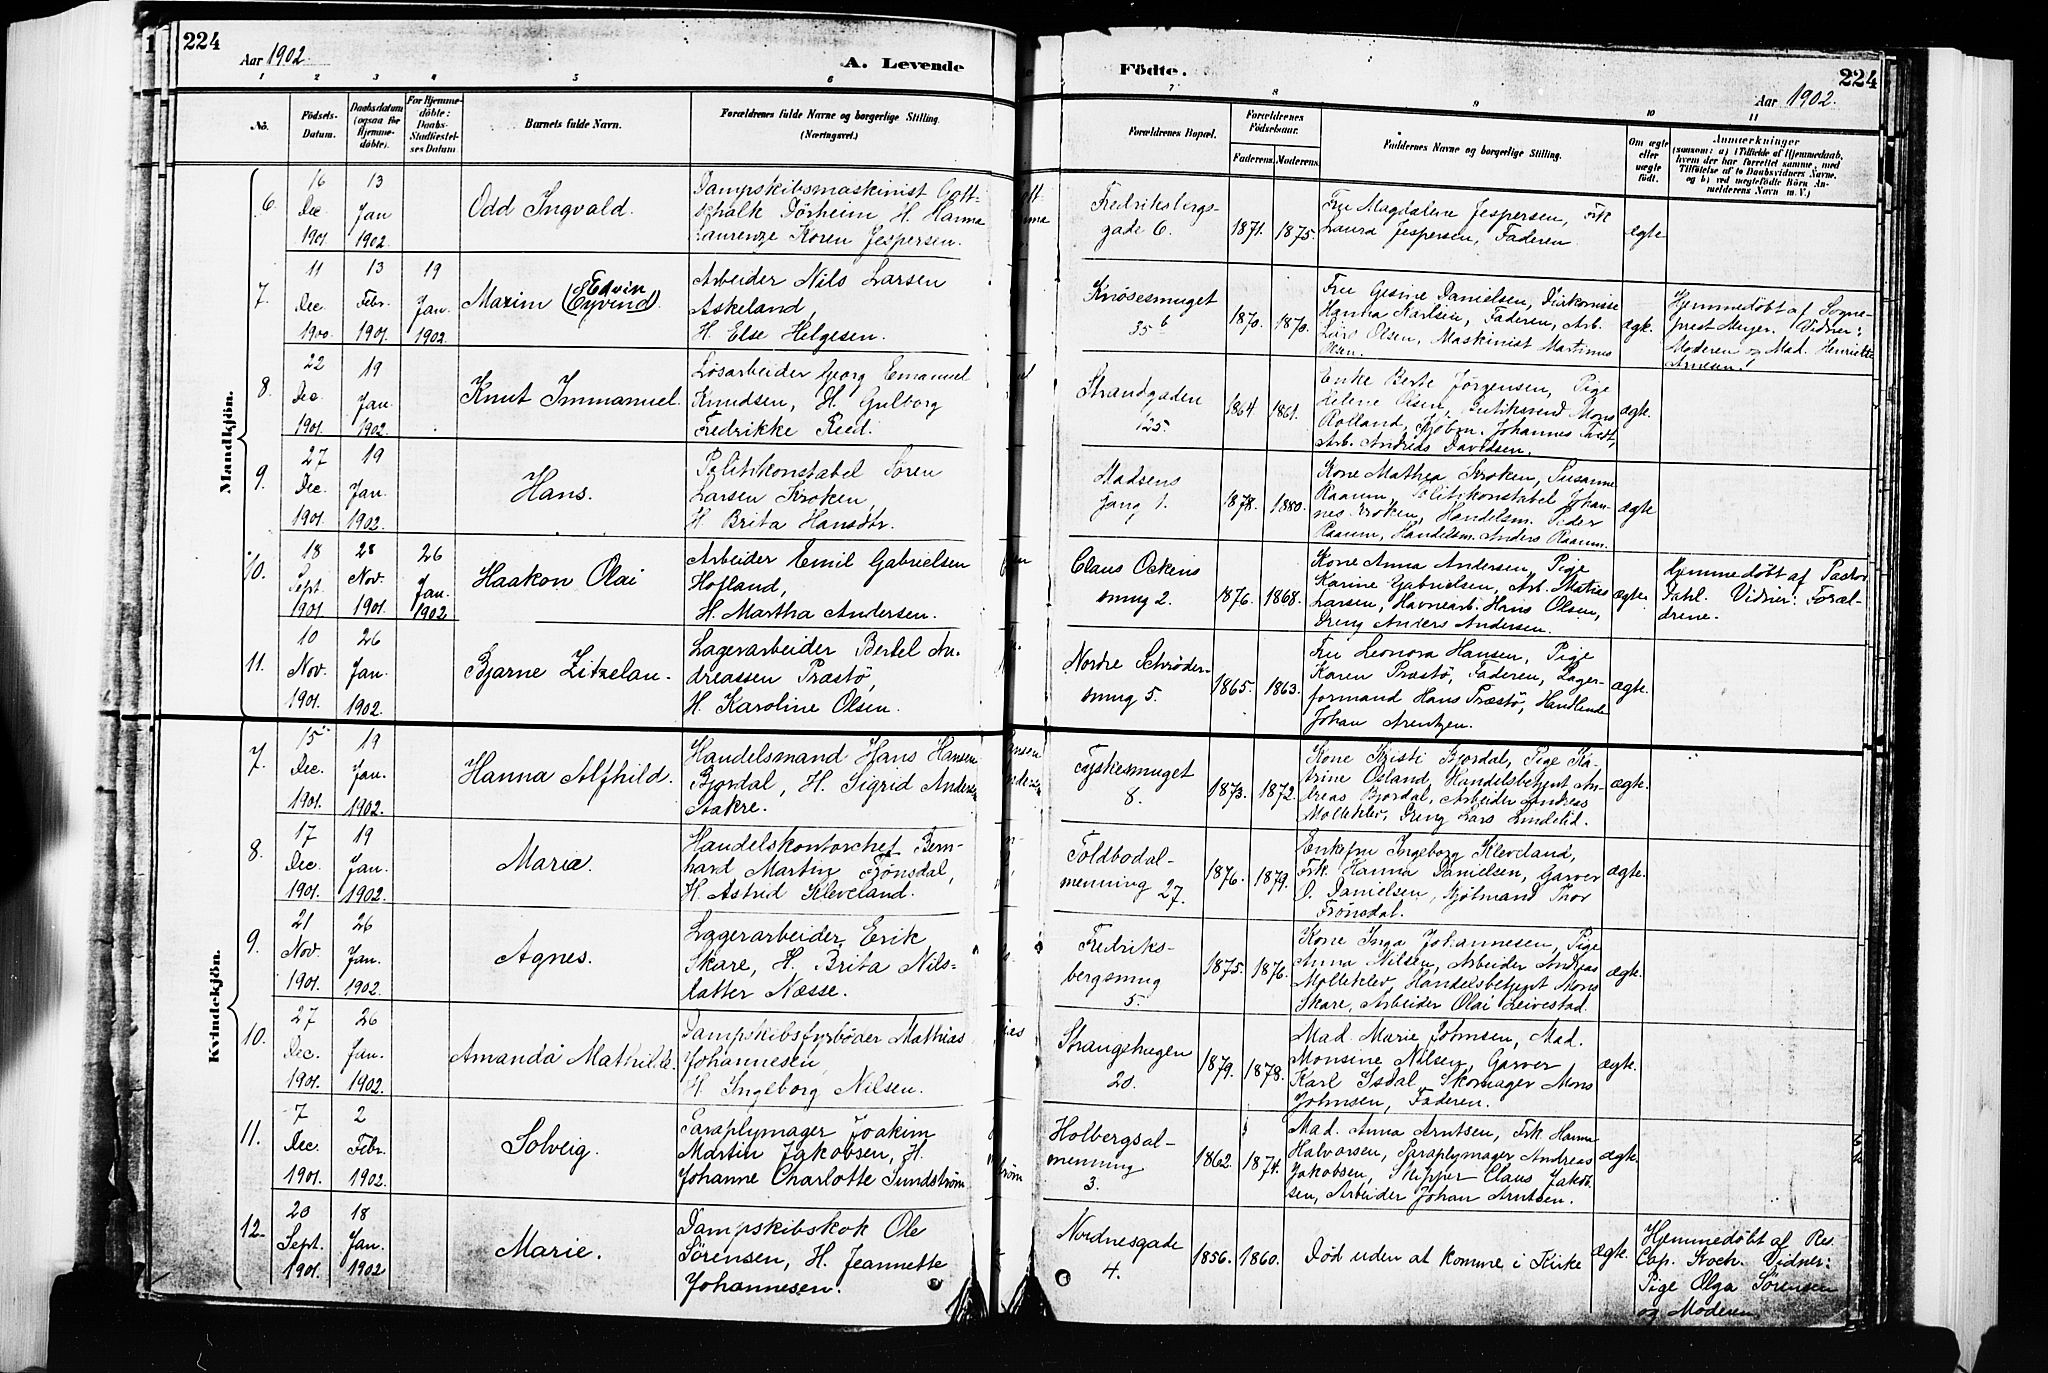 224
Aar 1902.
A. Levende
Födte.
224
Aar 1902.
1 2 3 4 5 6 7 8 9 10 11
No.
Födsels-
Datum.
Daabsdatum
(ogsaa for
Hjemme-
döbte).
For Hjemme-
döbte:
Daabs-
Stadfæstel-
ses Datum.
Barnets fulde Navn.
Forældrenes fulde Navne og borgerlige Stilling.
(Næringsvei.)
Forældrenes Bopæl.
Forældrenes
Födselsaar.
Faderens. Moderens.
Faddernes Navne og borgerlige Stilling.
Om ægte
eller
uægte
födt.
Anmærkninger
(saasom: a) i Tilfælde af Hjemmedaab,
hvem der har forrettet samme, med
Tilföielse af to Daabsvidners Navne,
og b) ved uægtefödte Börn An-
melderens Navn m. V.)
Mandkjön.
6.
16
Dec.
1901.
13
Jan
1902.
Odd Ingvald.
Dampskibsmaskinist Gott-
schalk Dörheim, H. Hanna
Laurenze Koren Jespersen.
Fredriksbergs-
gade 6.
1871. 1875.
Fru Magdalene Jespersen, Frk
Laura Jespersen, Faderen
ægte
7.
11
Dec.
1900.
13
Febr.
1901.
19
Jan.
1902.
Maxim (Eyvind).
Edvin
Arbeider Nils Larsen
Askeland,
H. Else Helgesen.
Knösesmuget
35 b
1870. 1870.
Fru Gesine Danielsen, Diakonisse
Hanna Karlsen, Faderen, Arb.
Lars Olsen, Maskinist Martinus
Olsen.
ægt.
Hjemmedöbt af Sogne-
prest Meyer. Vidner:
Moderen og Mad. Henriette
Arnesen.
8.
22
Dec.
1901.
19
Jan.
1902.
Knut Immanuel.
Lösarbeider Georg Emanuel
Knudsen, H. Gulborg
Fredrikke Reed.
Strandgaden
125.
1864. 1861.
Enke Berte Jörgensen, Pige
Helene Olsen, Butiksvend Mons
Rolland, Kjöbm. Johannes Tvedt,
Arb. Andreas Davidsen.
ægt.
9.
27
Dec.
1901.
19
Jan.
1902.
Hans.
Politikonstabel Sören
Larsen Kroken,
H. Brita Hansdtr.
Madsens
gang 1.
1878. 1880.
Kone Mathea Kroken, Susanne
Raaum, Politikonstabel Johan-
nes Kroken, Handelsm. Peder
Raaum, Handelsm. Anders Raaum.
ægte
10.
18
Sept.
1901
28
Nov.
1901.
26
Jan.
1902
Haakon Olai
Arbeider Emil Gabrielsen
Hofland,
H. Martha Andersen.
Claus Ockens
smug 2.
1876. 1868.
Kone Anna Andersen, Pige
Karine Gabrielsen, Arb. Matias
Larsen, Havnearb. Hans Olsen,
Dreng Anders Andersen.
ægte.
Hjemmedöbt af Pastor
Dahl. Vidner: Foræl-
drene.
11.
10
Nov.
1901.
26
Jan.
1902.
Bjarne Zitzelan.
Lagerarbeider Bertel An-
dreassen Præstö,
H. Karoline Olsen.
Nordre Schröder-
smug 5.
1865. 1863.
Fru Leonora Hansen, Pige
Karen Præstö, Faderen, Lager-
formand Hans Præstö, Handlende
Johan Arentzen.
ægte.
Kvindekjön.
7.
15
Dec.
1901.
19
Jan.
1902.
Hanna Alfhild.
Handelsmand Hans Hansen
Bjordal, H. Sigrid Andersen
Aakre.
Tyskesmuget
8.
1873. 1872.
Kone Kristi Bjordal, Pige Ka-
trine Osland, Handelsbetjent An-
dreas Bjordal, Arbeider Andreas
Mölleklev, Dreng Lars Lindelid.
ægte.
8.
17
Dec.
1901.
19
Jan.
1902.
Marie.
Handelskontorchef Bern-
hard Martin Frönsdal,
H. Astrid Kleveland.
Toldbodal-
menning 27.
1876. 1879.
Enkefru Ingeborg Kleveland,
Frk. Hanna Danielsen, Garver
O. Danielsen, Styrmand Thor
Frönsdal.
ægte.
9.
21
Nov.
1901.
26
Jan.
1902.
Agnes.
Lagerarbeider Erik
Skare, H. Brita Nils-
datter Næsse.
Fredriks-
bergsmug
5.
1875. 1876.
Kone Inga Johannesen, Pige
Anna Nilsen, Arbeider Andreas
Mölleklev, Handelsbetjent Mons
Skare, Arbeider Olai Leivestad.
ægte.
10.
27
Dec.
1901.
26
Jan.
1902.
Amanda Mathilde.
Dampskibsfyrböder Mathias
Johannesen,
H. Ingeborg Nilsen.
Strangehagen
20.
1879. 1878.
Mad. Marie Johnsen, Mad.
Monsine Nilsen, Garver
Karl Isdal, Skomager Mons
Johnsen, Faderen.
ægte.
11.
7
Dec.
1901.
2
Febr.
1902.
Solveig.
Paraplymager Joakim
Martin Jakobsen, H.
Johanne Charlotte Sundström
Holbergsal-
menning
3.
1862. 1874.
Mad. Anna Arntsen, Frk. Hanna
Halvorsen, Paraplymager Andreas
Jakobsen, Skipper Claus Jakob-
sen, Arbeider Johan Arntsen.
ægte.
12.
20
Sept.
1901.
18
Jan.
1902
Marie.
Dampskibskok Ole
Sörensen, H. Jeannette
Johannesen.
Nordnesgade
4.
1856. 1860.
Död uden at komme i Kirke
ægte.
Hjemmedöbt af Res.
Cap. Koch. Vidner:
Pige Olga Sörensen
og Moderen.